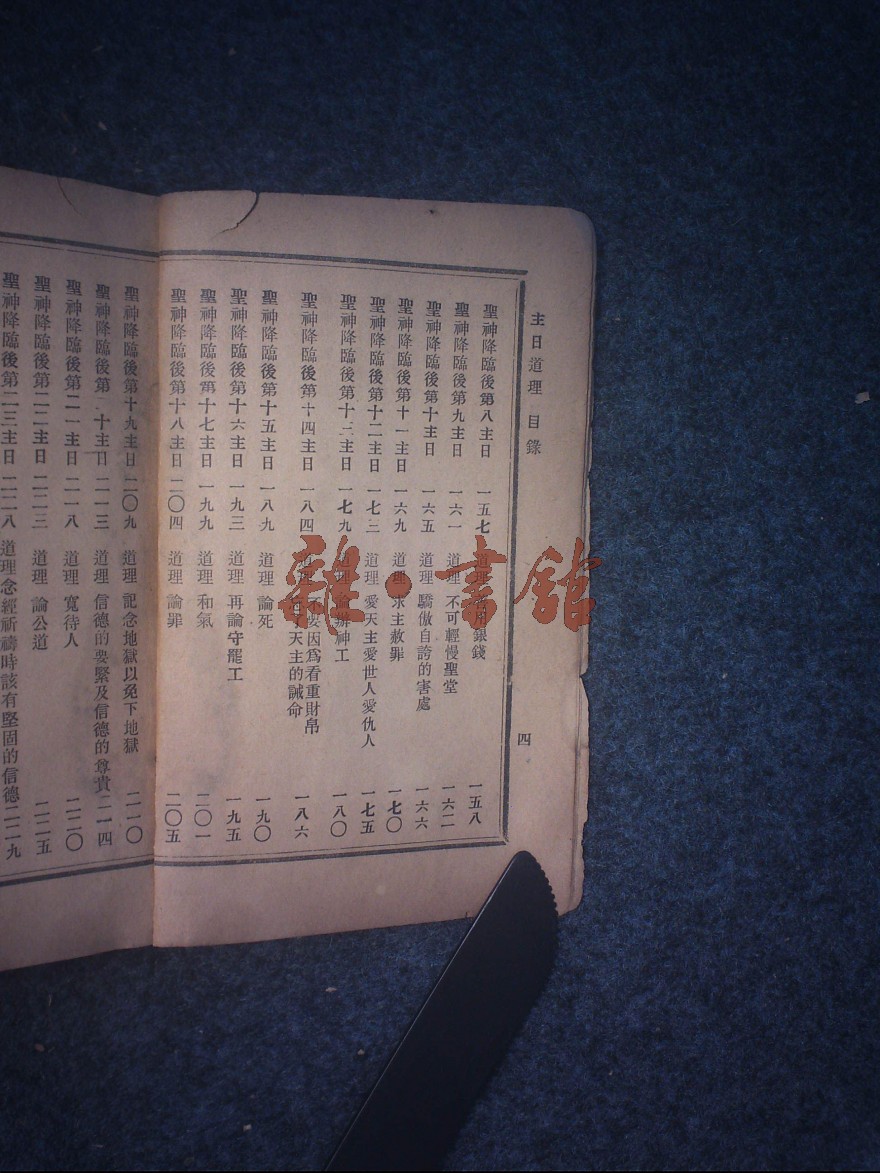 主日道理 目錄
四
聖神降臨後第八主日 一五七 道理 用銀錢 一五八
聖神降臨後第九主日 一六一 道理 不可輕慢聖堂 一六二
聖神降臨後第十主日 一六五 道理 驕傲自誇的害處 一六六
聖神降臨後第十一主日 一六九 道理 求主赦罪 一七〇
聖神降臨後第十二主日 一七三 道理 愛天主愛世人愛仇人 一七五
聖神降臨後第十三主日 一七九 道理 論辦神工 一八〇
聖神降臨後第十四主日 一八四 道理 不要因爲看重財帛
了天主的誡命 一八六
聖神降臨後第十五主日 一八九 道理 論死 一九〇
聖神降臨後第十六主日 一九三 道理 再論守罷工 一九五
聖神降臨後第十七主日 一九九 道理 和氣 二〇一
聖神降臨後第十八主日 二〇四 道理 論罪 二〇五
聖神降臨後第十九主日 二〇九 道理 記念地獄以免下地獄 二一〇
聖神降臨後第 十主日 二一三 道理 信德的要緊及信德的尊貴 二一四
聖神降臨後第二一主日 二一八 道理 寬待人 二二〇
聖神降臨後第二二主日 二二三 道理 論公道 二二五
聖神降臨後第二三主日 二二八 道理 念經祈禱時該有堅固的信德 二二九
雜·書館